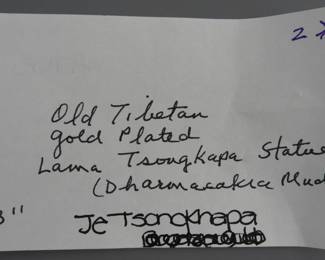 Old Tibetan
gold Plated
Lama Tsongkapa Statue
(Dharmacakra Mud
3"
Je Tsongkhapa